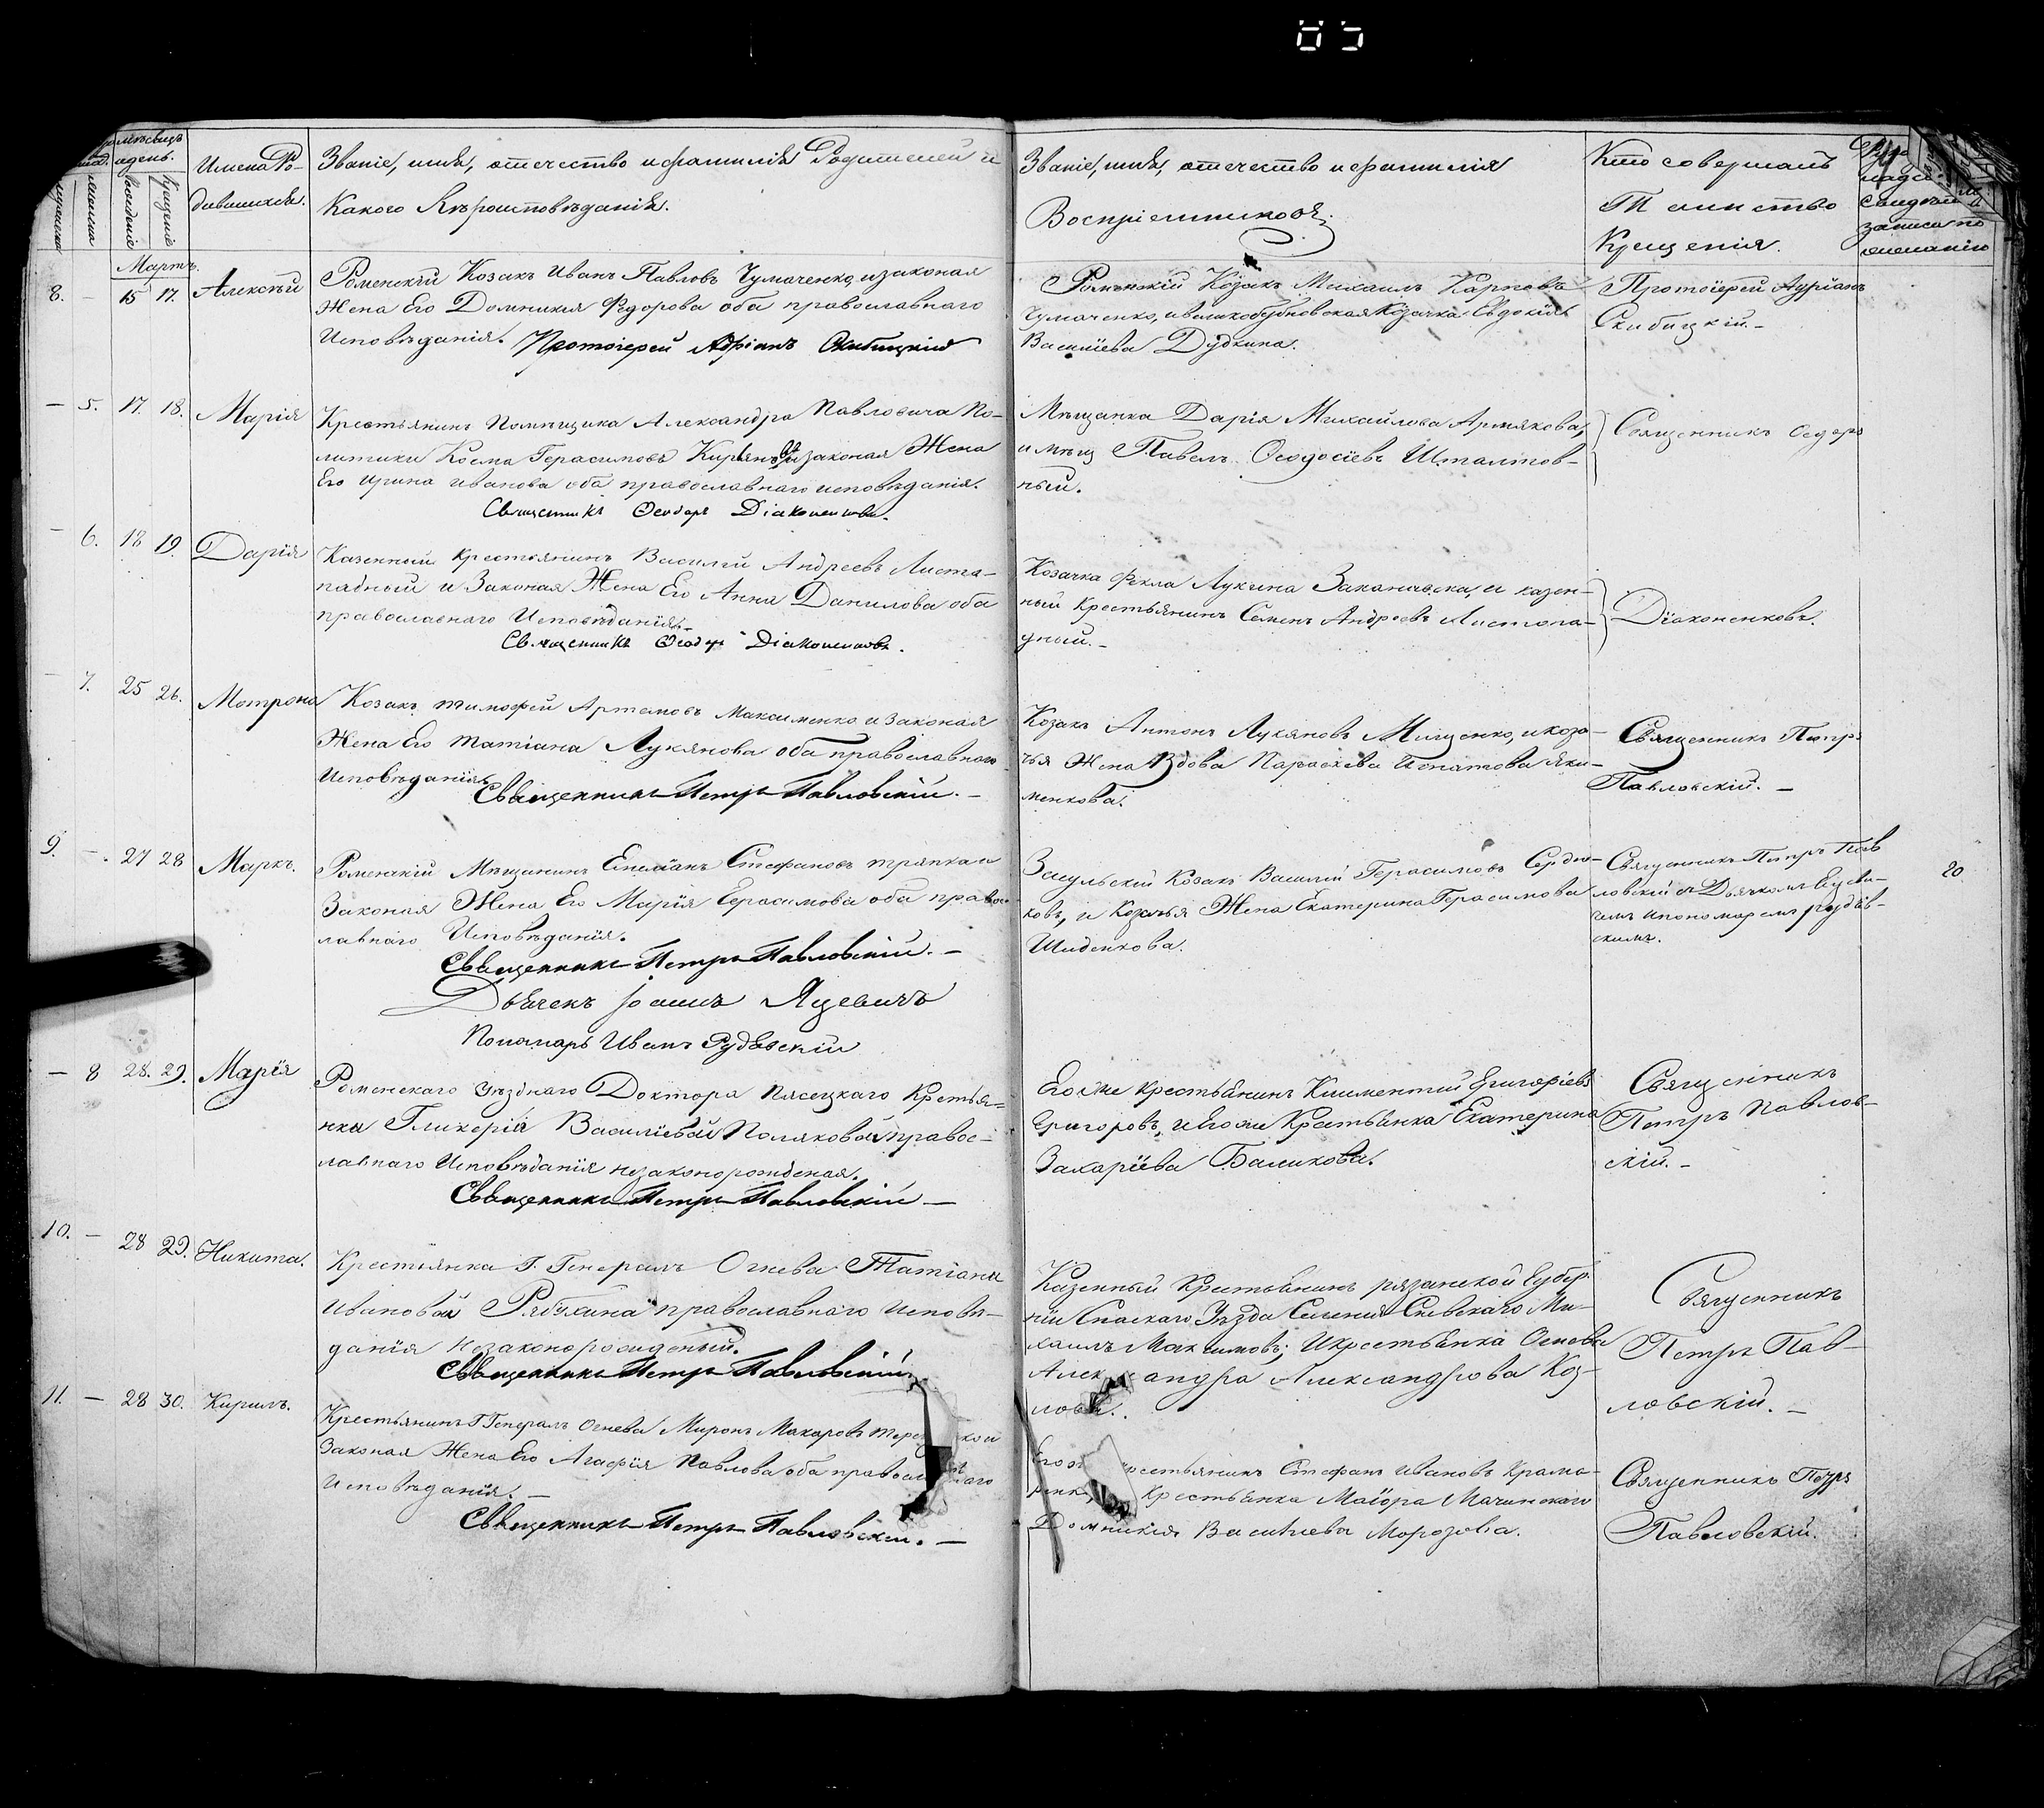 мѣсяцъ
и день.
рожденія
крещенія
Имена Ро-
дившихся.
Званіе, имя, отечество и фамилія Родителей и
Какого Вѣроисповѣданія.
Званіе, имя, отечество и фамилія
Воспріемниковъ.
Кто совершалъ
Таинство
Крещенія.
записи по
желанію
Мартъ.
8. — 15 17. Алексѣй
Роменскій Козакъ Иванъ Павловъ Чумаченко, и законая
Жена Его Домникия Федорова оба православнаго
Исповѣданія. Протоіерей Адріанъ Скибицкій
Роменскій Козакъ Михаилъ Карповъ
Чумаченко, и великобубновская Козачка Евдокія
Василіева Дудкина.
Протоіерей Адріанъ
Скибицкій. —
— 5. 17. 18. Марія
Крестьянинъ Помѣщика Александра Павловича По-
литики Косма Герасимовъ и законая Жена
Его Ирина Иванова оба православнаго исповѣданія.
Священникъ Ѳеодоръ Діаконенковъ.
Мѣщанка Дарія Михайлова Армякова,
и мѣщ Павелъ Ѳеодосіевъ Шталтов-
ный.
Священникъ Ѳедоръ
— 6. 18 19. Дарія
Казенный крестьянинъ Василій Андреевъ Листо-
падный и Законая Жена Его Анна Данилова оба
православнаго Исповѣданія. —
Священникъ Ѳеодоръ Діаконенковъ.
Козачка Фекла Лукина и казен-
ный Крестьянинъ Семенъ Андреевъ Листопа-
дный. —
Діаконенковъ.
— 7. 25 26. Мотрона
Козакъ Тимофей Артемовъ Максименко и Законая
Жена Его Татіана Лукянова оба православнаго
Исповѣданія.
Священникъ Петръ Павловскій. —
Козакъ Антонъ Лукяновъ Мищенко, и коза-
чья Жена Вдова Параскева Игнатова Яки-
менкова.
Священникъ Петръ
Павловскій. —
9. — 27 28 Маркъ.
Роменскій Мѣщанинъ Емеліанъ Стефановъ Тряпка и
Законая Жена Его Марія Герасимова оба правос-
лавнаго Исповѣданія.
Священникъ Петръ Павловскій. —
Дьячекъ Іоаннъ Яцевичъ
Пономарь Иванъ Рудѣвскій
Засульскій Козакъ Василій Герасимовъ Сердю-
ковъ, и Козачья Жена Екатерина Герасимова
Шиденкова.
Священникъ Петръ Пав
ловскій съ Дьячкомъ Яцеви-
чемъ и пономаремъ Рудѣв-
скимъ.
20
— 8 28. 29. Марія
Роменскаго Уѣзднаго Доктора Пясецкаго Крестья-
нки Гликеріи Василіевой Поляковой правос-
лавнаго Исповѣданія незаконорожденая.
Священникъ Петръ Павловскій —
Его же крестьянинъ Климентий Григоріевъ
Григоровъ, и Его же Крестьянка Екатерина
Захаріева Баликова.
Священникъ
Петръ Павлов-
скій. —
10. — 28 29. Никита.
Крестьянка Г. Генералъ Огнева Татіаны
Ивановой Рябухина православнаго исповѣ-
данія незаконорожденый.
Священникъ Петръ Павловскій
Казенный Крестьянинъ Рязанской Губер-
ніи Спаскаго Уѣзда Селенія Ми-
хаилъ Максимовъ; И крестьянка Огнева
Александра Александрова Коз-
лова.
Священникъ
Петръ Пав-
ловскій. —
11. — 28 30. Кирилъ.
Крестьянинъ Г Генералъ Огнева Миронъ Макаровъ и
Законая Жена Его Агафія Павлова оба православнаго
Исповѣданія. —
Священникъ Петръ Павловскій. —
крестьянинъ Стефанъ Ивановъ Крама-
ренко, Крестьянка Маіора Мачинскаго
Домникія Василіева Морозова.
Священникъ Петръ
Павловскій.